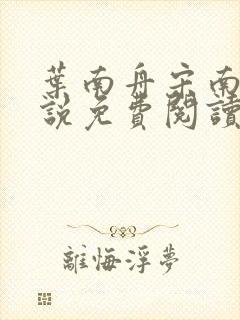 葉南舟宋南
說免費閱讀
離悔浮夢